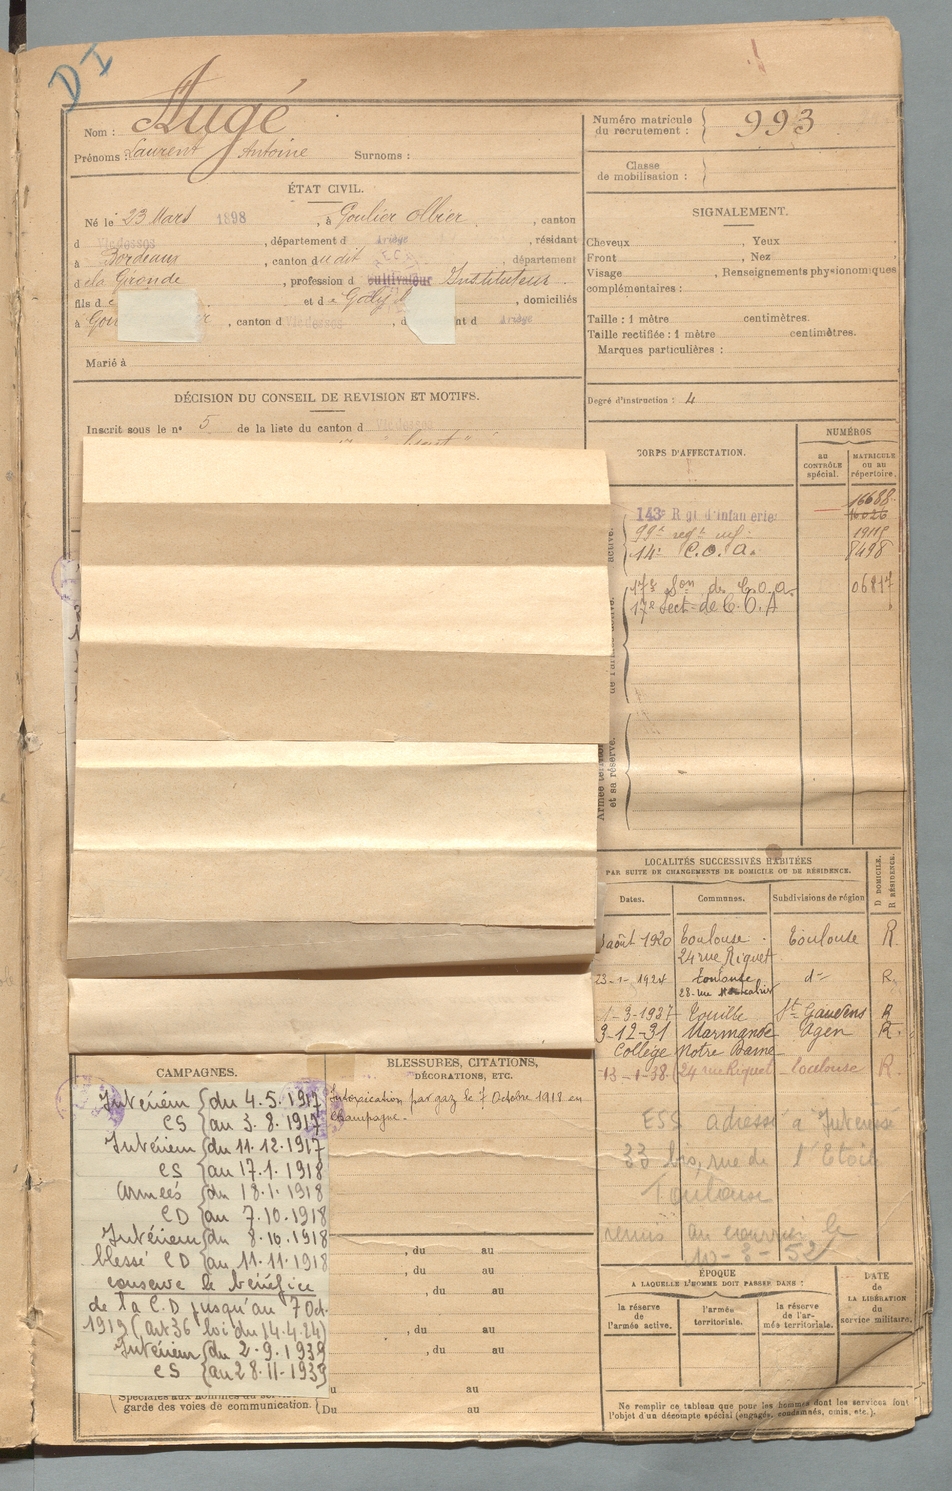 D I
Nom : Augé
Prénoms : Laurent Antoine Surnoms :
ÉTAT CIVIL.
Né le 23 Mars 1898, à Goulier Olbier, canton
d Vicdessos, département d Ariège, résidant
à Bordeaux, canton dudit, département
de la Gironde, profession d cultivateur Instituteur
fils d et de Goly, domiciliés
à Gou er, canton d Vicdessos, d nt d Ariège
Marié à
DÉCISION DU CONSEIL DE REVISION ET MOTIFS.
Inscrit sous le nº 5 de la liste du canton d Vicdessos
Numéro matricule du recrutement : 993
Classe de mobilisation :
SIGNALEMENT.
Cheveux , Yeux
Front , Nez
Visage , Renseignements physionomiques
complémentaires :
Taille : 1 mètre centimètres.
Taille rectifiée : 1 mètre centimètres.
Marques particulières :
Degré d'instruction : 4
CORPS D'AFFECTATION.
NUMÉROS
au CONTRÔLE spécial.
MATRICULE ou au répertoire.
16688
143e Rgt d'infanterie 16026
99e regt inf:
14e C.O.A. 8498
17e Son de C.O.A. 06817
17e Sect- de C.O.A
active.
Armée
et sa réserve.
LOCALITÉS SUCCESSIVES HABITÉES
PAR SUITE DE CHANGEMENTS DE DOMICILE OU DE RÉSIDENCE.
D DOMICILE. R RÉSIDENCE.
Dates. Communes. Subdivisions de région
août 1920 Toulouse . Toulouse R.
24 rue Riquet
23-1-1924 Toulouse d° R.
28 rue
1-3-1927 Touille St Gaudens R
3-12-31 Marmande Agen R.
Collège Notre Dame
13-1-38. (24 rue Riquet Toulouse R.
ESS adresse à Intéressé
33 bis, rue de l'Etoile
Toulouse
remis au courrier le
10-3-52
CAMPAGNES.
Intérieur du 4.5.1917
CS au 3.8.1917
Intérieur du 11.12.1917
CS au 17.1.1918
Armées du 18.1.1918
CD au 7.10.1918
Intérieur du 8.10.1918
blessé CD au 11.11.1918
conserve le bénéfice
de la C.D jusqu'au 7 Oct.
1919 (art 36 loi du 14.4.24)
Intérieur du 2.9.1939
CS au 28.11.1939
Spéciales aux hommes du servi
garde des voies de communication. Du au
BLESSURES, CITATIONS,
DÉCORATIONS, ETC.
Intoxication par gaz le 7 Octobre 1918 en
Champagne.
, du au
, du au
, du au
, du au
, du au
u au
ÉPOQUE
A LAQUELLE L'HOMME DOIT PASSER DANS :
la réserve de l'armée active.
l'armée territoriale.
la réserve de l'armée territoriale.
DATE de LA LIBÉRATION du service militaire.
Ne remplir ce tableau que pour les hommes dont les services font
l'objet d'un décompte spécial (engagés, condamnés, omis, etc.).